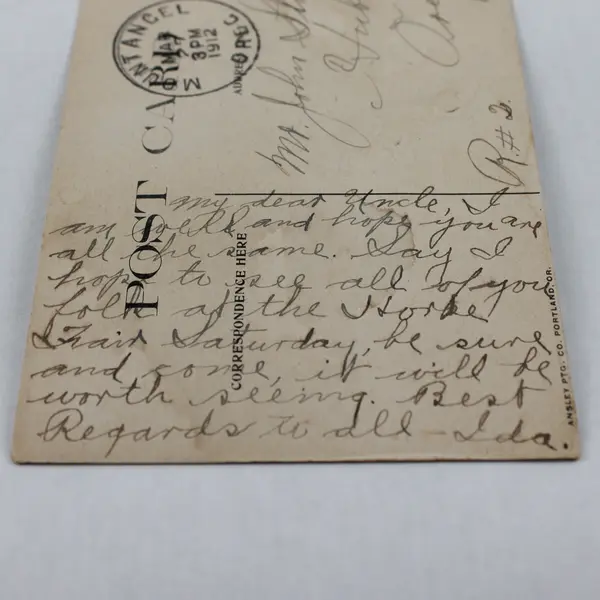 MT ANGEL
OREG.
MAR
27
3PM
1912
POST CARD
CORRESPONDENCE HERE
ADDRESS
Mr. John
R. # 2.
my dear Uncle, I
am well and hope you are
all the same. Say I
hope to see all of you
folk at the Horse
Fair Saturday, be sure
and come, it will be
worth seeing. Best
Regards to all - Ida.
ANSLEY PTG. CO. PORTLAND, OR.